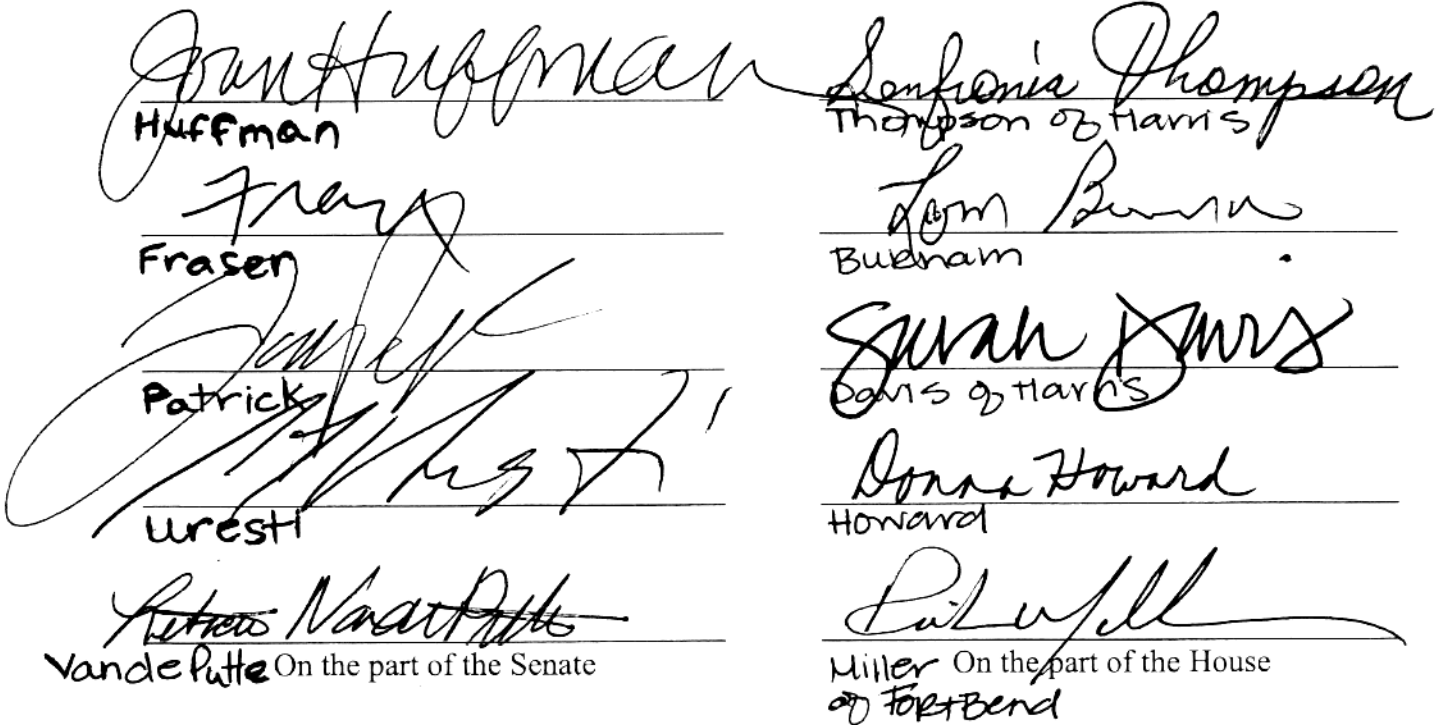 Joan Huffman
Huffman
Fraser
Patrick
Uresti
VandePutte On the part of the Senate
Senfronia Thompson
Thompson of Harris
Lon Burnam
Burnam
Sarah Davis
Davis of Harris
Donna Howard
Howard
Miller On the part of the House
of Fort Bend